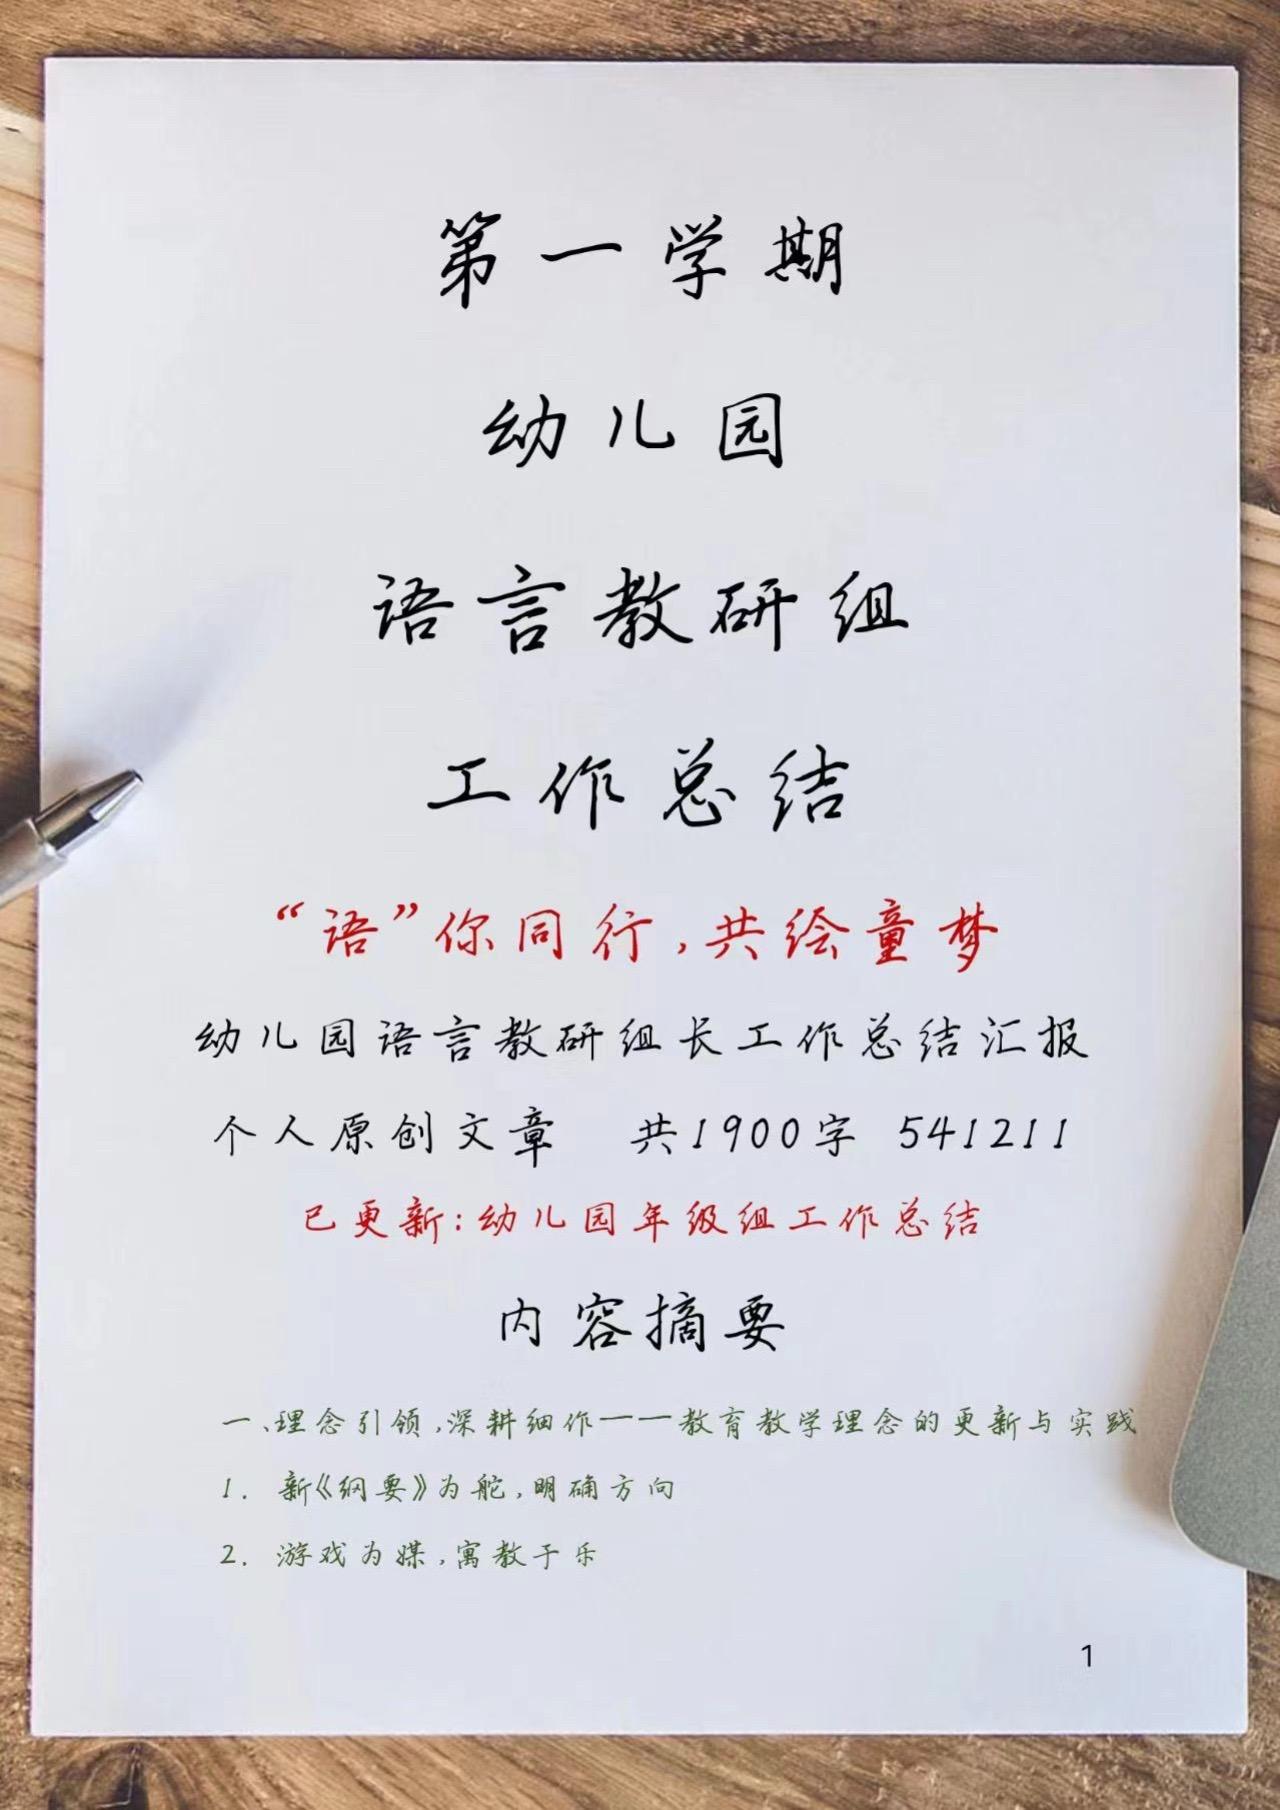 第一学期
幼儿园
语言教研组
工作总结
“语”你同行,共绘童梦
幼儿园语言教研组长工作总结汇报
个人原创文章 共1900字 541211
已更新:幼儿园年级组工作总结
内容摘要
一、理念引领,深耕细作——教育教学理念的更新与实践
1. 新《纲要》为舵,明确方向
2. 游戏为媒,寓教于乐
1